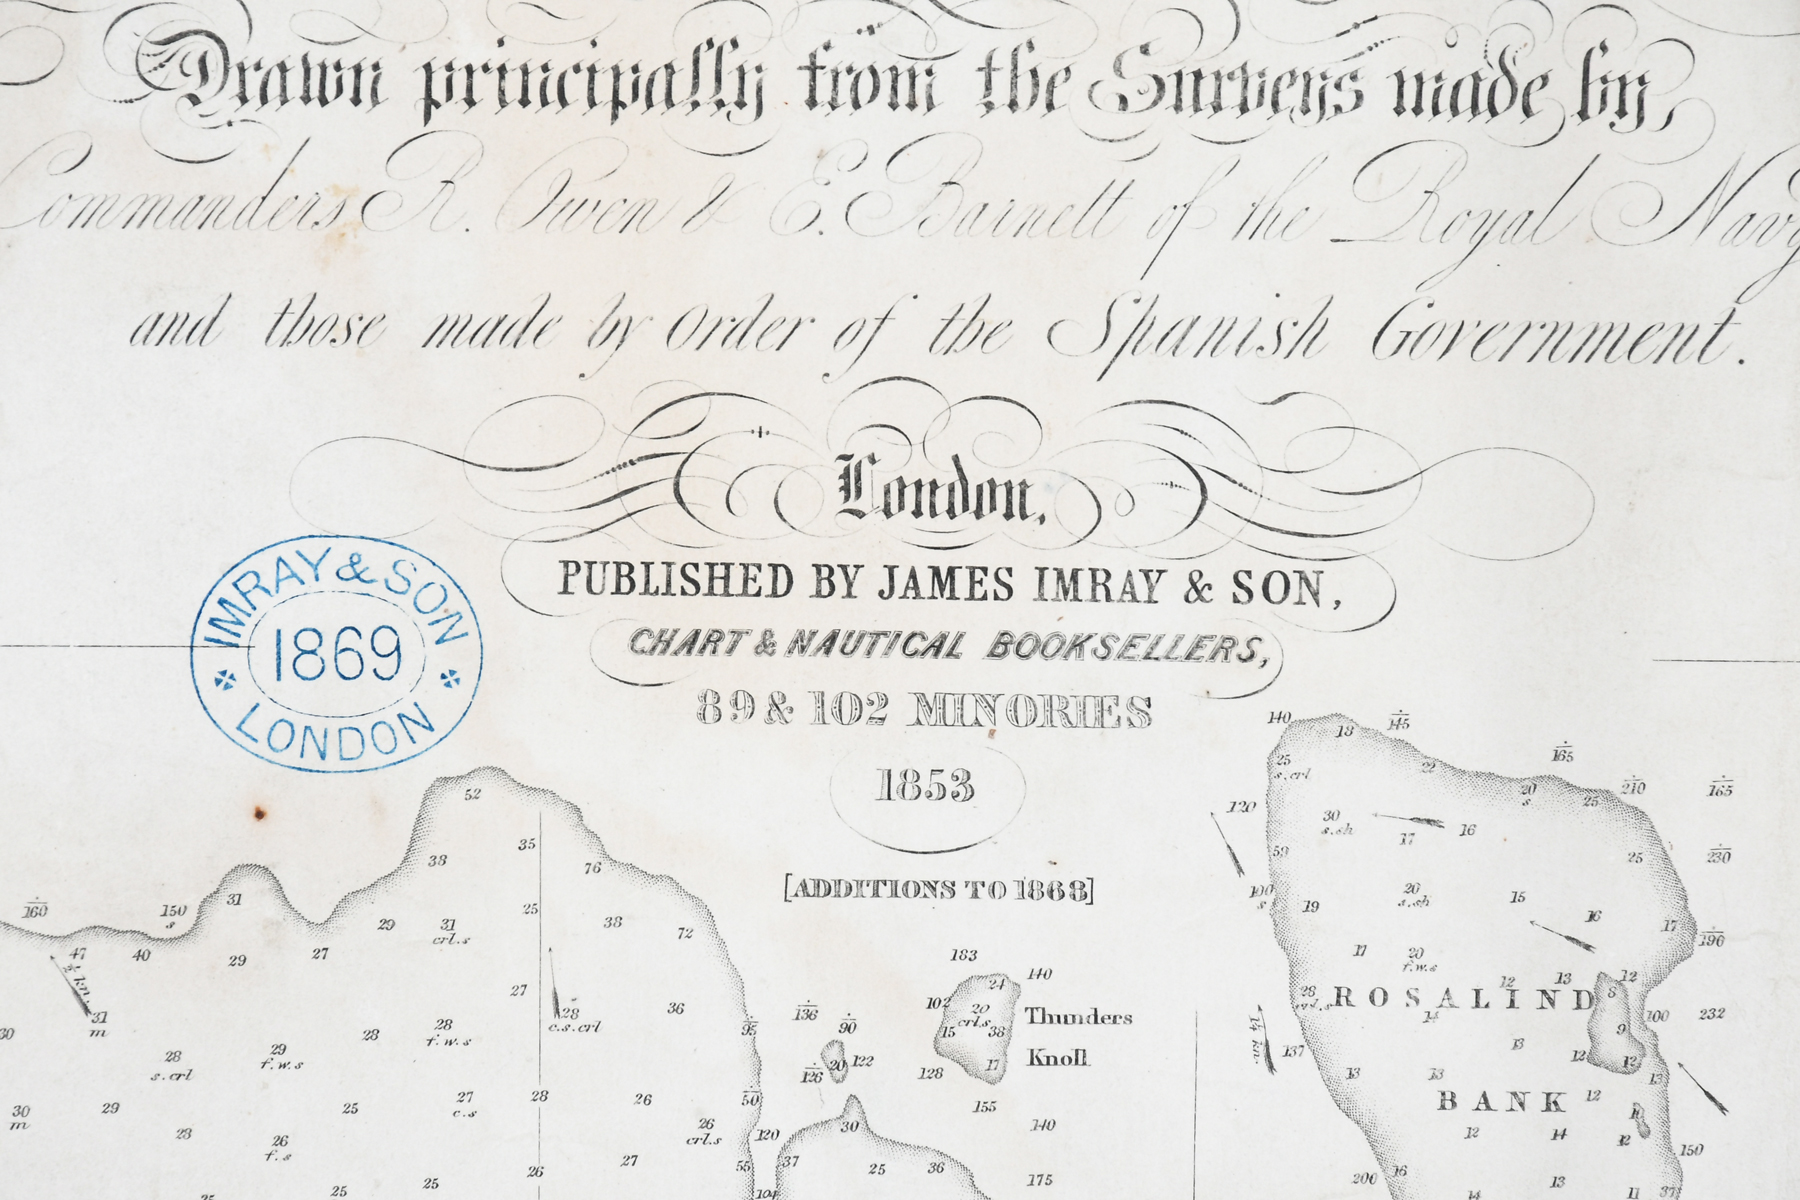 Drawn principally from the Surveys made by,
Commanders R. Owen & E. Barnett of the Royal Navy
and those made by Order of the Spanish Government.
London,
PUBLISHED BY JAMES IMRAY & SON,
CHART & NAUTICAL BOOKSELLERS,
89 & 102 MINORIES
1853
[ADDITIONS TO 1868]
IMRAY & SON
1869
LONDON
160
150
s
31
47
40
29
27
½ kn.
31
m
30
28
s.crl
29
f.w.s
30
m
29
28
26
f.s
25
52
38
35
76
29
31
crl.s
25
38
72
27
28
c.s.crl
36
28
28
f.w.s
27
c.s
28
26
25
26
crl.s
27
26
25
25
95
50
120
55
104
136
90
20
122
126
30
37
25
36
183
140
24
102
20
crl.s
15
38
17
Thunders
Knoll
128
155
140
175
140
18
145
25
s.crl
22
165
20
s
25
210
165
120
30
s.sh
17
16
59
25
230
100
s
19
20
s.sh
15
16
17
17
20
f.w.s
196
28
12
13
12
8
ROSALIND
14
9
100
232
137
13
12
12
13
13
13
BANK
12
12
14
12
150
200
16
13
14
11
37